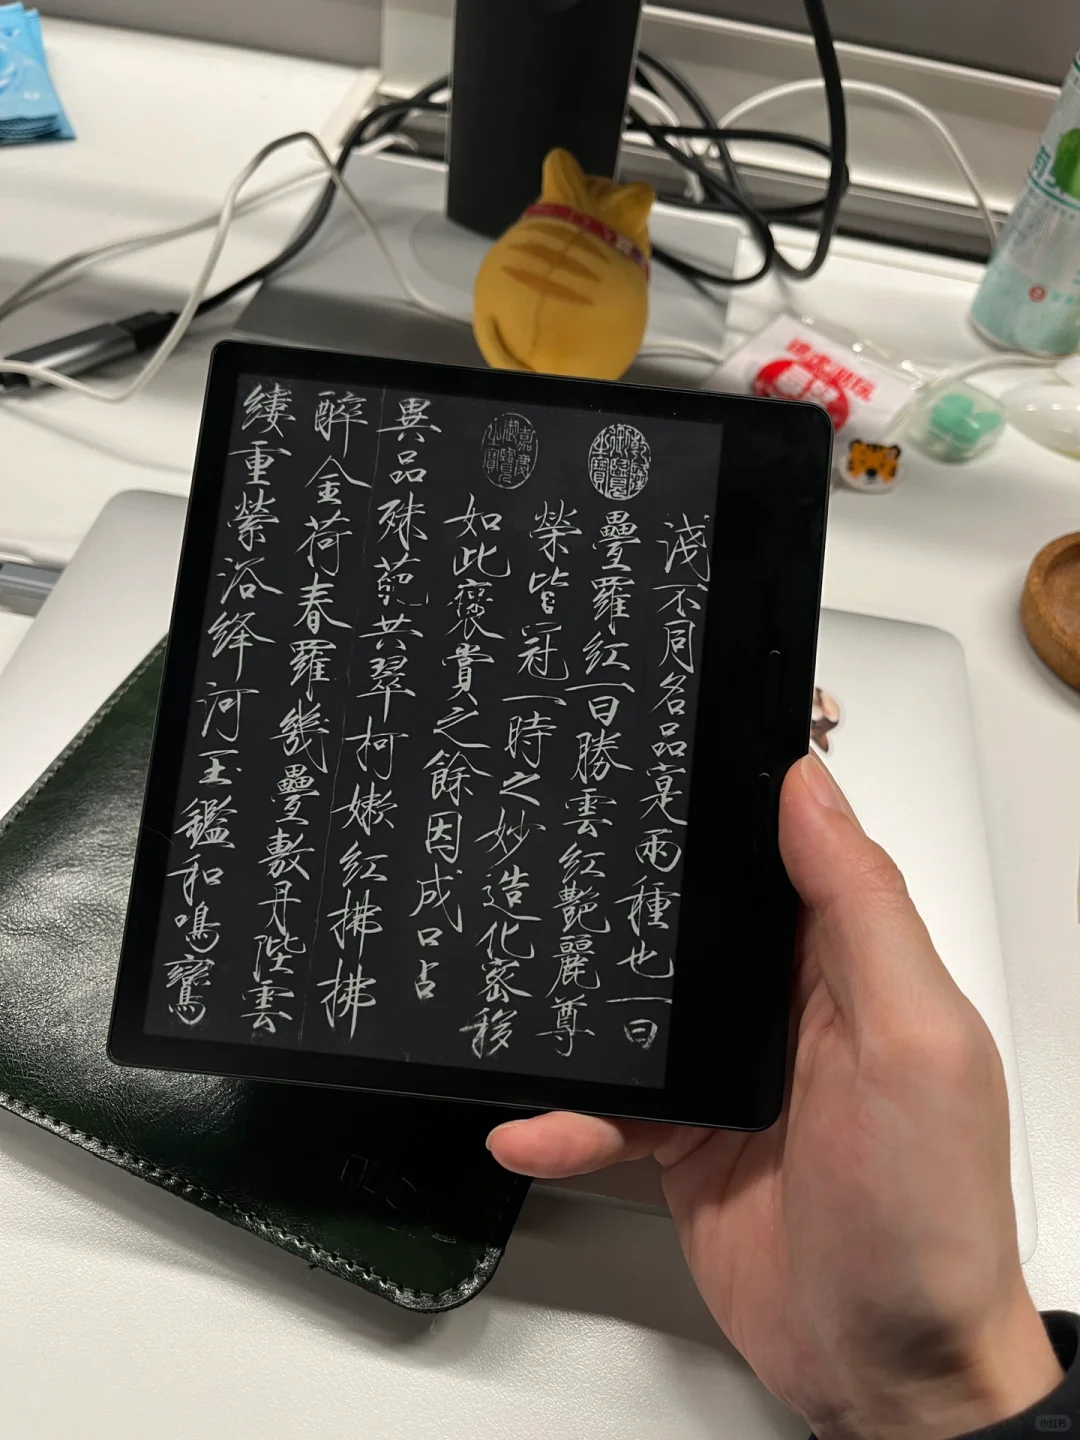 淺不同名品寔兩種也一曰
乾隆御覽之寶
疊羅紅一曰勝雲紅艷麗尊
榮皆冠一時之妙造化密移
嘉慶御覽之寶
如此褒賞之餘因成口占
異品殊葩共翠柯嫩紅拂拂
醉金荷春羅幾疊敷丹陛雲
縷重縈浴絳河玉鑑和鳴鸞
小红书